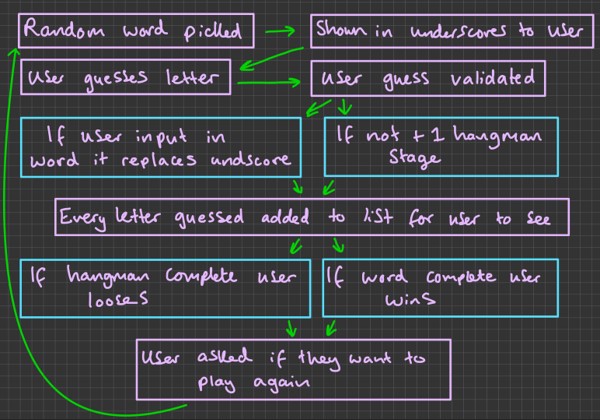 Random word picked
Shown in underscores to user
User guesses letter
User guess validated
If user input in
word it replaces undscore
If not + 1 hangman
Stage
Every letter guessed added to list for user to see
If hangman complete user
looses
If word complete user
wins
User asked if they want to
play again